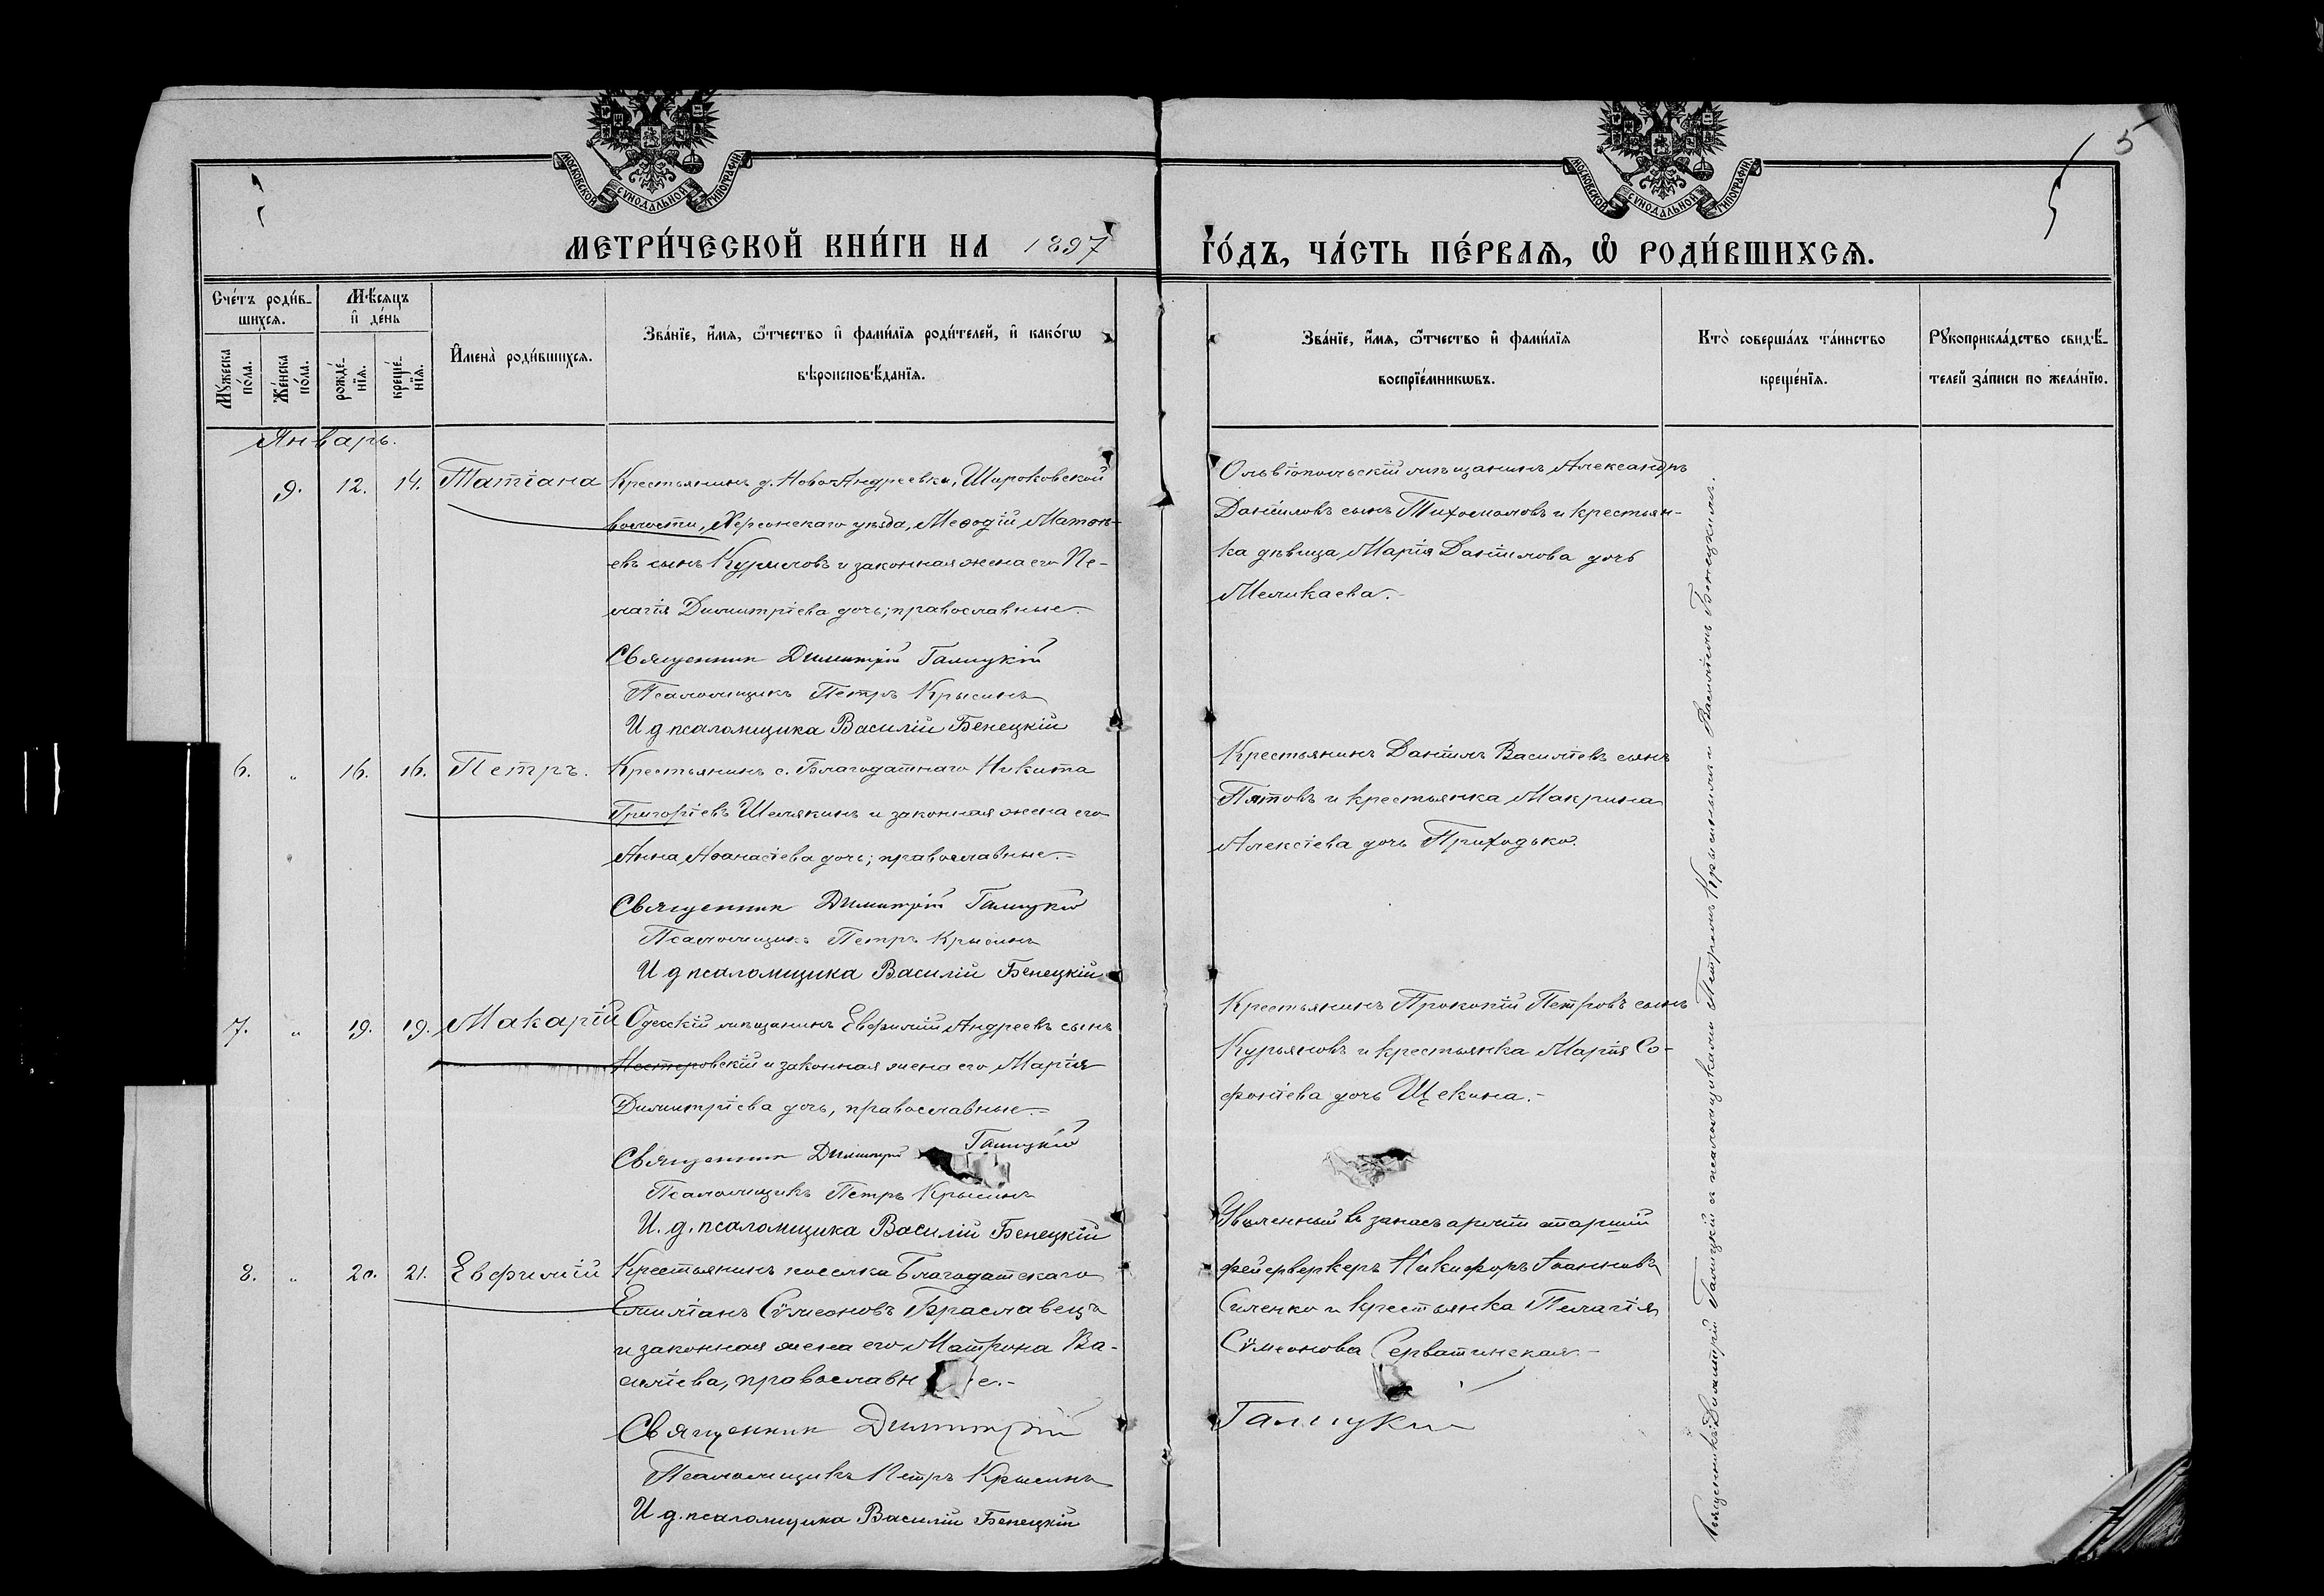 МОСКОВСКОЙ СѴНОДАЛЬНОЙ ТИПОГРАФІИ
МОСКОВСКОЙ СѴНОДАЛЬНОЙ ТИПОГРАФІИ
5
МЕТРИ́ЧЕСКОЙ КНИ́ГИ НА 1897
ГО́ДЪ, ЧА́СТЬ ПЕ́РВАѦ, Ѽ РОДИ́ВШИХСѦ.
Сче́тъ роди́в-
шихсѧ.
Мѣ́сѧцъ
и҆ де́нь
Мꙋ́жеска
по́ла.
Же́нска
по́ла.
рожде́-
нїѧ.
креще́-
нїѧ.
И҆мена̀ роди́вшихсѧ.
Зва́нїе, и҆́мѧ, ѻ҆́тчество и҆ фами́лїѧ роди́телей, и҆ како́гѡ
вѣроисповѣ́данїѧ.
Зва́нїе, и҆́мѧ, ѻ҆́тчество и҆ фами́лїѧ
воспрїе́мникѡвъ.
Кто̀ соверша́лъ та́инство
креще́нїѧ.
Рꙋкоприкла́дство свидѣ́-
телей за́писи по жела́нїю.
Январь.
9. 12. 14. Татіана
Крестьянинъ д. НовоАндреевки, Широковской
волости, Херсонскаго уѣзда, Меѳодій
евъ сынъ Куриловъ и законная жена его Пе-
лагія Димитріева дочь; православные.
Священник Димитрій Галицкій
Псаломщикъ Петръ Крысинъ
И д псаломщика Василій Бенецкій
Ольвіопольскій мѣщанинъ Александръ
Даніиловъ сынъ и крестьян-
ка дѣвица Марія Даніилова дочь
Меликаева.
6. " 16. 16. Петръ.
Крестьянинъ с. Благодатнаго Никита
Григоріевъ Шелякинъ и законная жена его
Анна Аѳанасіева дочь; православные.
Священник Димитрій Галицкій
Псаломщикъ Петръ Крысинъ
И д псаломщика Василій Бенецкій
Крестьянинъ Даніилъ Василіевъ сынъ
Пятовъ и крестьянка Макрина
Алексіева дочь Приходько.
7. " 19. 19. Макарій
Одесскій мѣщанинъ Евфимій Андреевъ сынъ
Нестеровскій и законная жена его Марія
Димитріева дочь, православные.
Священник Димитрій Галицкій
Псаломщикъ Петръ Крысинъ
И. д. псаломщика Василій Бенецкій
Крестьянинъ Прокопій Петровъ сынъ
Курьяновъ и крестьянка Марія Со-
фоніева дочь Щекина.
8. " 20. 21. Евфимій
Крестьянинъ поселка Благодатскаго
Емиліанъ Сѵмеоновъ Браславецъ
и законная жена его Матрона Ва-
силіева, православн е.
Священник Димитрій
Галицкій
Псаломщикъ Петръ Крысинъ
И д. псаломщика Василій Бенецкій
Уволенный въ запасъ арміи старшій
фейерверкеръ Никифоръ Іоанновъ
Силенко и крестьянка Пелагія
Сѵмеонова Серватинская.
Священникъ Димитрій Галицкій и псаломщиками Петромъ Крысинымъ и Василіемъ Бенецкимъ.